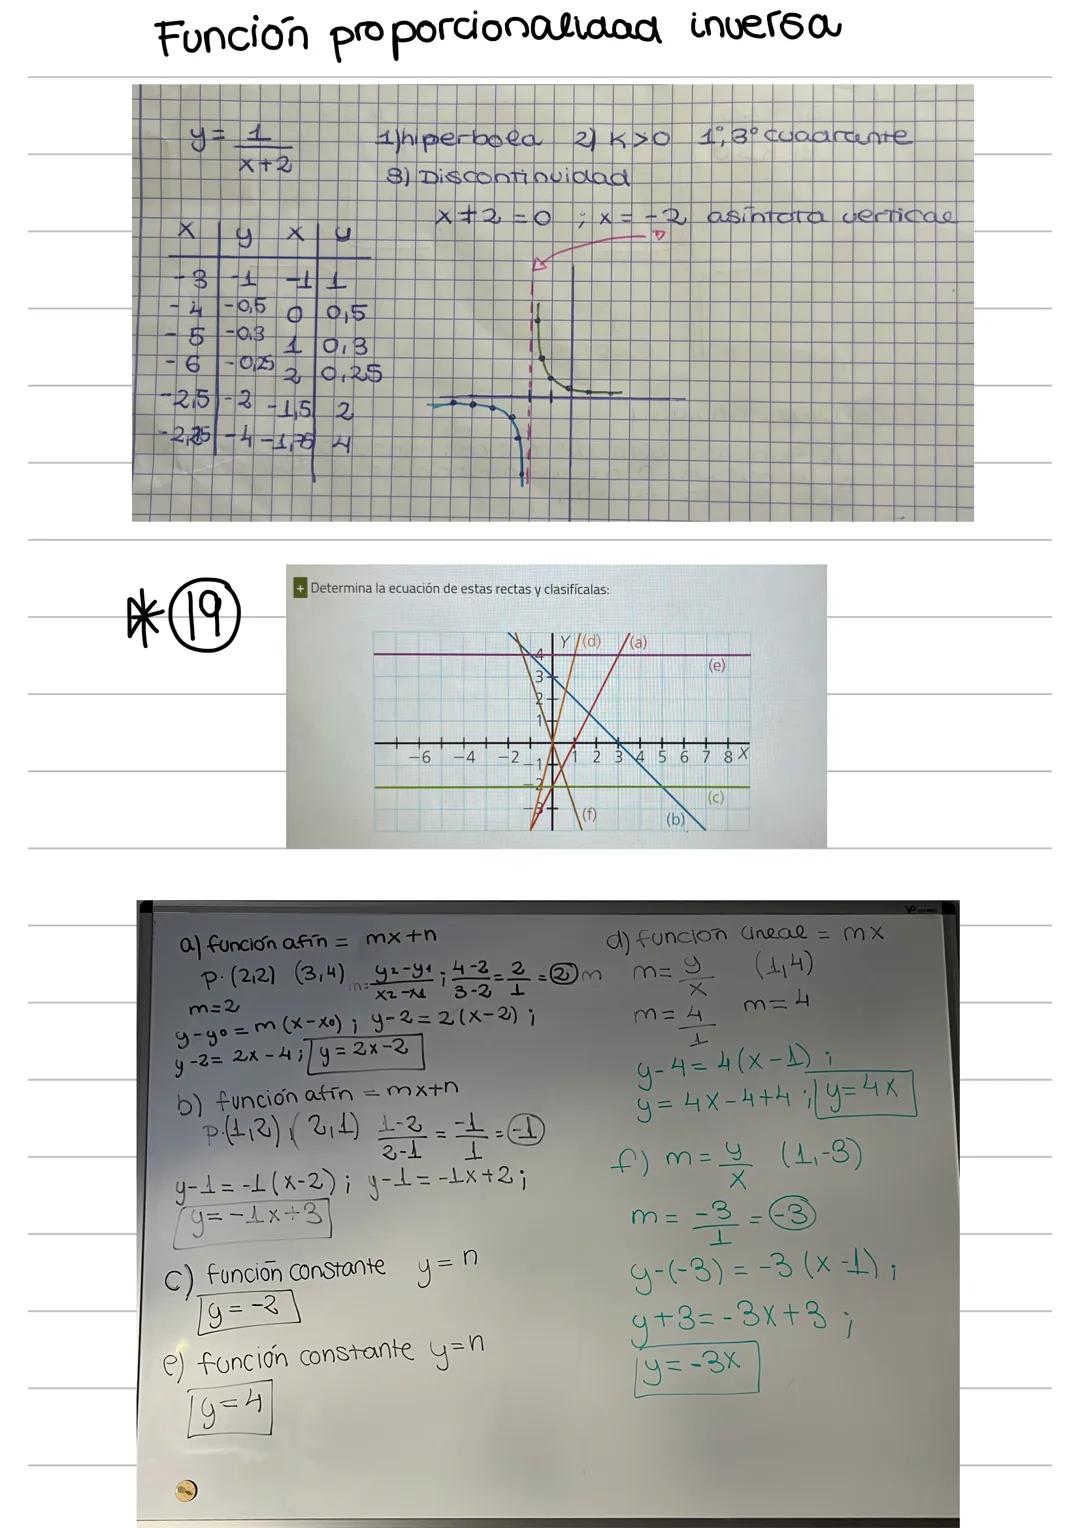 Función proporcionalidad inversa
y = 1/(x+2)
1) hiperbola 2) K>0 1º, 3º cuadrante
3) Discontinuidad
x+2=0 ; x=-2 asíntota vertical
x | y x | y
-3 | -1 -1 | 1
-4 | -0,5 0 | 0,5
-5 | -0,3 1 | 0,3
-6 | -0,25 2 | 0,25
-2,5 | -2 -1,5 | 2
-2,25 | -4 -1,75 | 4
* 19
+ Determina la ecuación de estas rectas y clasifícalas:
Y (d) (a)
4
(e)
3
2
1
-6 -4 -2 1 2 3 4 5 6 7 8 X
-1
-2
(c)
-3
(f) (b)
a) función afín = mx+n
P. (2,2) (3,4) m= (y2-y1)/(x2-x1) ; (4-2)/(3-2) = 2/1 = 2 m
m=2
y-y0 = m(x-x0) ; y-2=2(x-2) ;
y-2= 2x-4 ; y=2x-2
b) función afín = mx+n
P.(1,2) (2,1) (1-2)/(2-1) = -1/1 = -1
y-1=-1(x-2) ; y-1=-1x+2 ;
y=-1x+3
c) función constante y=n
y=-2
e) función constante y=n
y=4
d) función lineal = mx
m= y/x (1,4)
m= 4/1 m=4
y-4=4(x-1) ;
y=4x-4+4 ; y=4x
f) m= y/x (1,-3)
m= -3/1 = -3
y-(-3)=-3(x-1) ;
y+3=-3x+3 ;
y=-3x